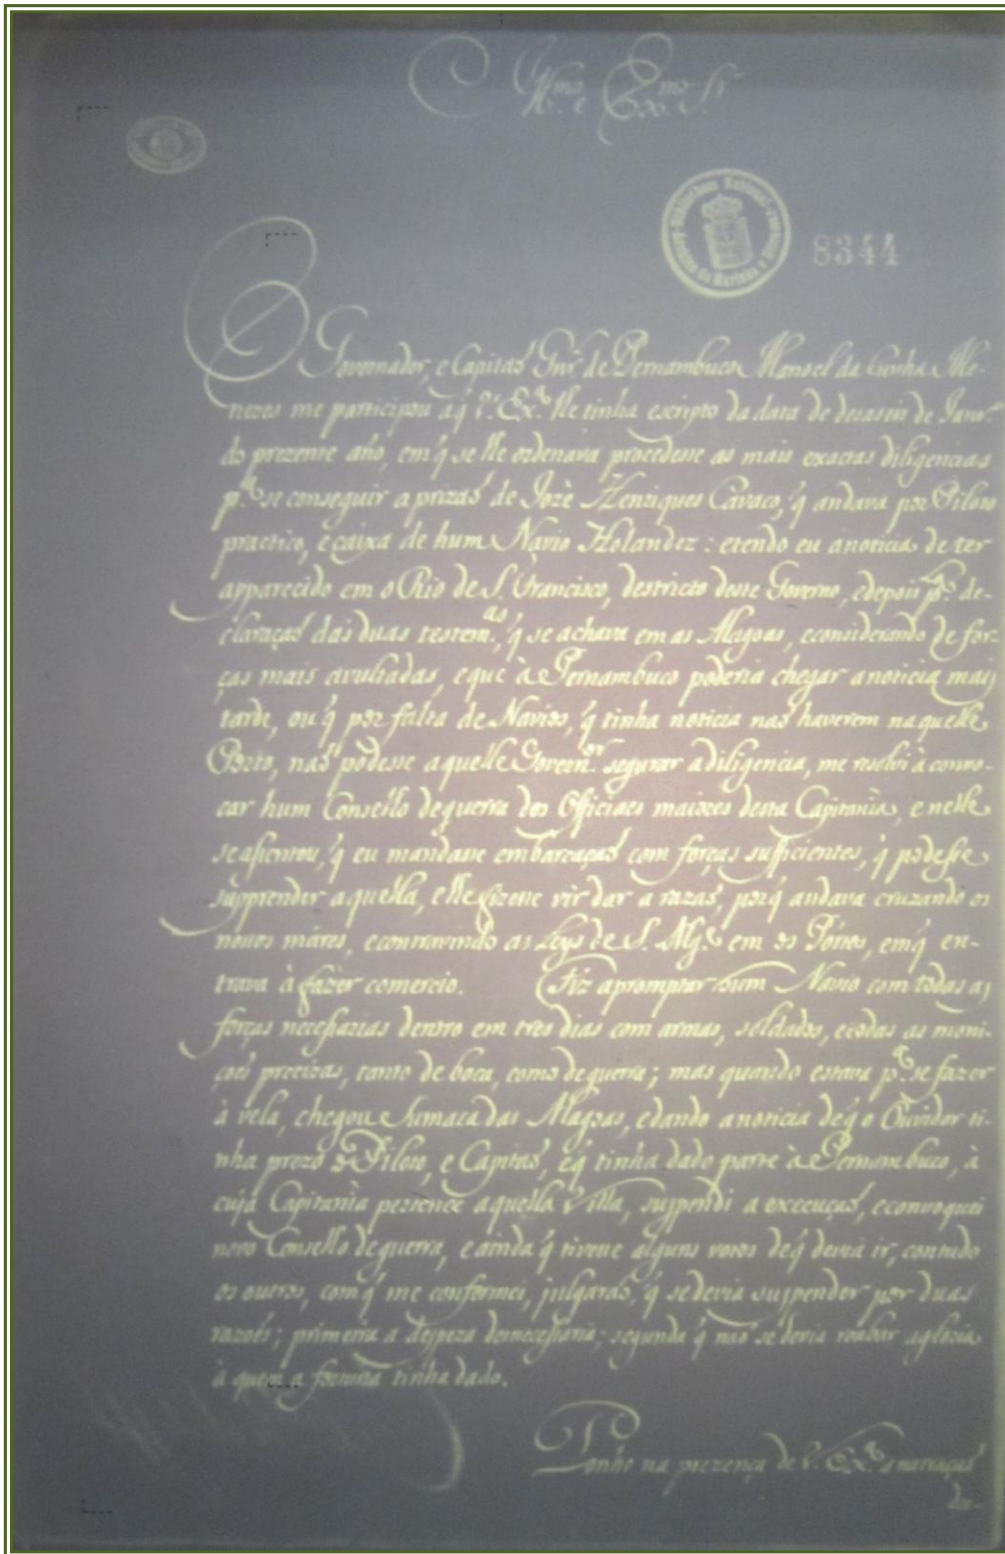 Ill.mo e Ex.mo Sr.
8344
Governador, e Capitaõ Gnal de Pernambuco Manoel da Cunha Me-
nezes me participou aq̃ V. Ex.ª lhe tinha escripto da data de dezaseis de Janr.º
do prezente año, em q̃ se lhe ordenava procedesse as mais exactas diligencias
p.ª se conseguir a prizaõ de Jozè Henriques Cavaco, q̃ andava por Piloto
practico, e caixa de hum Navio Holandez: e tendo eu a noticia de ter
apparecido em o Rio de S. Francisco, destricto deste Governo, e depois p.ª de-
claraçaõ das duas testem.as q̃ se achava em as Alagoas, e considerando de for-
ças mais avultadas, e que à Pernambuco poderia chegar a noticia mais
tarde, ou q̃ por falta de Navios, q̃ tinha noticia naõ haverem naquelle
Porto, naõ podesse aquelle Govern.or segurar a diligencia, me resolvi à convo-
car hum Conselho de guerra dos Officiaes maiores desta Capitanìa, e nelle
se assentou, q̃ eu mandasse embarcaçaõ com forças sufficientes, q̃ podesse
supprender aquella, e lhe fizesse vir dar a razaõ, porq̃ andava cruzando os
nossos màres, e contravindo as Leys de S. Mg.e em os Pórtos, em q̃ en-
trava à fazer comercio. Fiz apromptar hum Navio com todas as
forças necessarias dentro em tres dias com armas, soldados, e todas as moni-
çoẽs precizas, tanto de boca, como de guerra; mas quando estava p.ª se fazer
à vela, chegou Sumaca das Alagoas, e dando a noticia de q̃ o Ouvidor ti-
nha prezo o Piloto, e Capitaõ, e q̃ tinha dado parte à Pernambuco, à
cuja Capitanìa pertence aquella Villa, suspendi a execuçaõ, e convoquei
novo Conselho de guerra, e ainda q̃ tivesse alguns votos de q̃ devia ir, contudo
os outros, com q̃ me conformei, julgaraõ, q̃ se devia suspender por duas
razoẽs; primeira a despeza desnecessaria; segunda q̃ naõ se devia roubar a gloria
à quem a fortuna tinha dado.
Ponho na prezença de V. Ex.ª a narraçaõ
da-